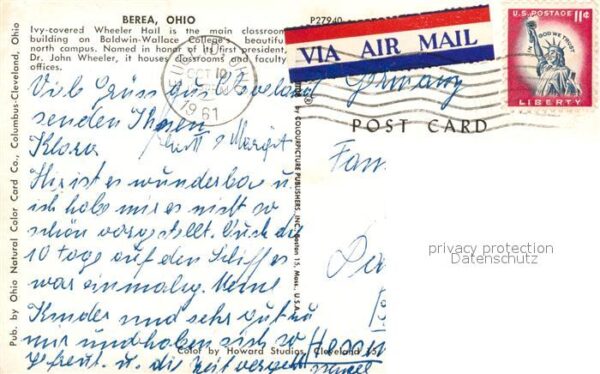 BEREA, OHIO
Ivy-covered Wheeler Hall is the main classroom
building on Baldwin-Wallace College's beautiful
north campus. Named in honor of its first president,
Dr. John Wheeler, it houses classrooms and faculty
offices.
P27940
VIA AIR MAIL
U.S. POSTAGE 11¢
IN GOD WE TRUST
LIBERTY
OCT 10
1961
Germany
POST CARD
Viel Grüsse aus Cleveland
senden Ihnen
Klara & Margit
Hier ist es wunderbar u.
ich habe mir es nicht so
schön vorgestellt. Auch die
10 Tage auf den Schiffe
war einmalig. Meine
Kinder sind sehr gut zu
mir und haben sich so
gefreut u. die Zeit vergeht
schnell
Fam.
Hessen
privacy protection
Datenschutz
Pub. by Ohio Natural Color Card Co., Columbus-Cleveland, Ohio
COLOURPICTURE PUBLISHERS, INC., Boston 15, Mass., U.S.A.
Color by Howard Studios, Cleveland 15,